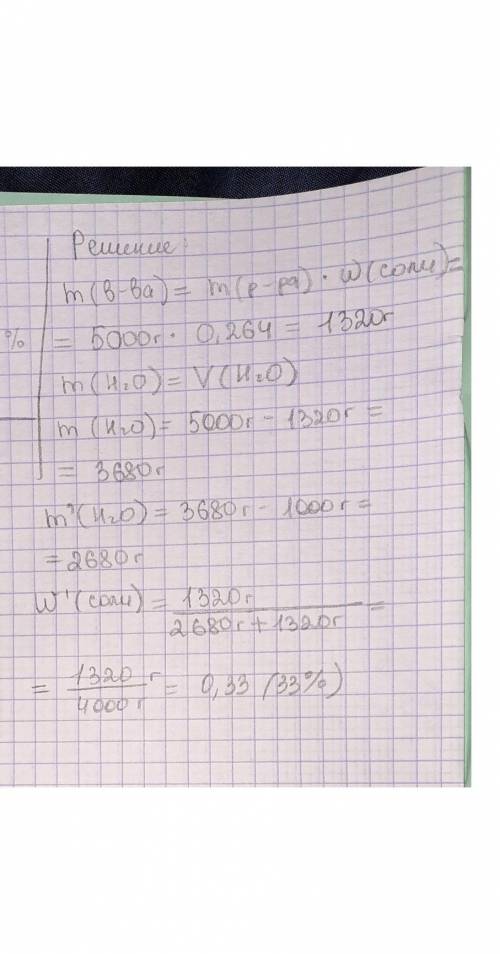 Решение:
m(в-ва) = m(р-ра) · W(соли) =
%
= 5000г · 0,264 = 1320г
m(H₂O) = V(H₂O)
m(H₂O) = 5000г - 1320г =
= 3680г
m'(H₂O) = 3680г - 1000г =
= 2680г
W'(соли) = 1320г / 2680г + 1320г =
= 1320г / 4000г = 0,33 (33%)